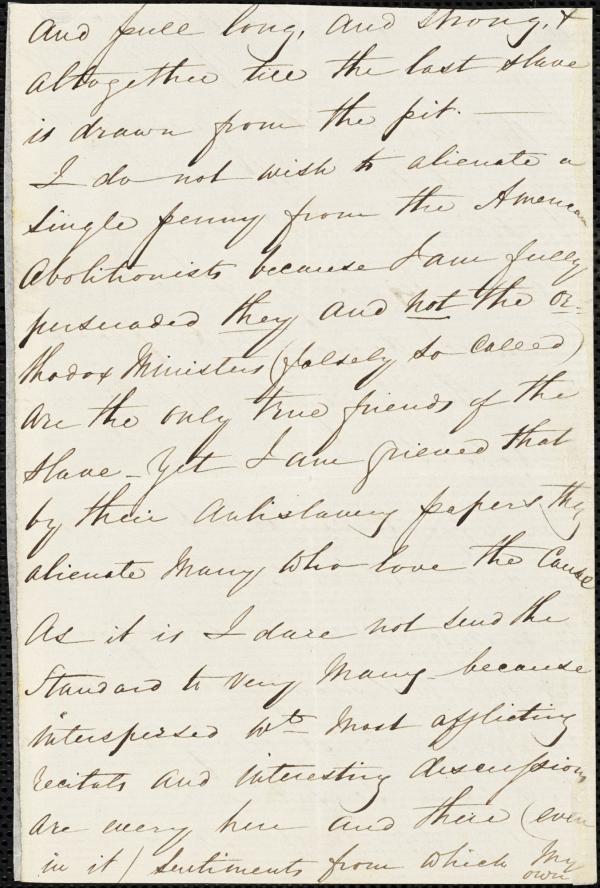 and pull long, and strong, &
altogether till the last slave
is drawn from the pit. —
I do not wish to alienate a
single penny from the American
Abolitionists because I am fully
persuaded they and not the Or=
thodox Ministers (falsely so called)
are the only true friends of the
slave - Yet I am grieved that
by their antislavery papers they
alienate many who love the Cause
As it is I dare not send the
Standard to very many because
interspersed wth most afflicting
recitals and interesting discussions
are every here and there (even
in it) sentiments from which my
own